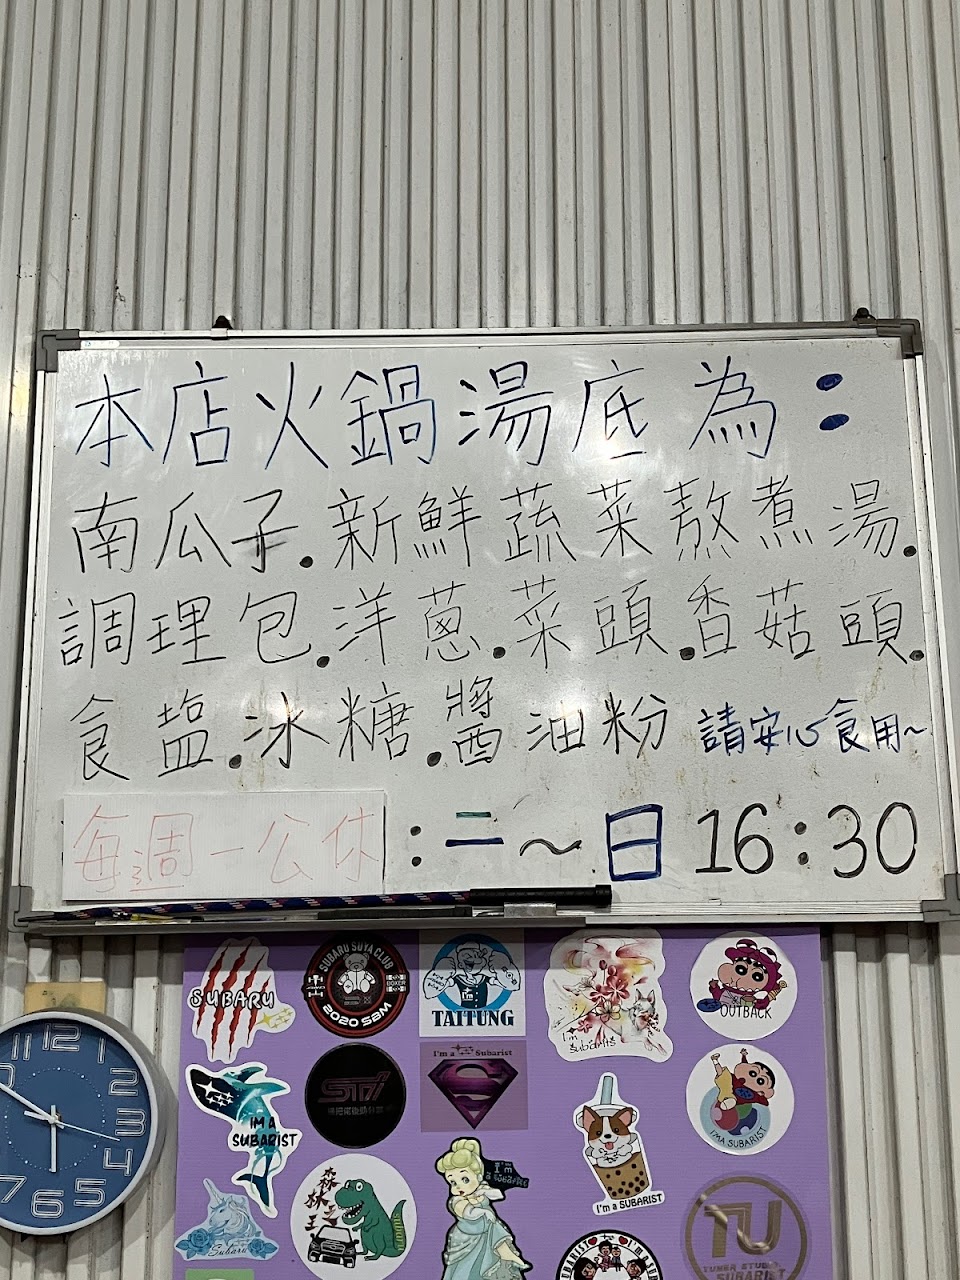 本店火鍋湯底為：
南瓜子.新鮮蔬菜熬煮湯.
調理包.洋蔥.菜頭.香菇頭.
食塩.冰糖.醬油粉 請安心食用~
每週一公休 : 二～日 16:30
SUBARU
SUBARU SUYA CLUB
BOXER
2020 SBM
I'm a
TAITUNG
I'm a Subarist
OUTBACK
STI
I'M A SUBARIST
I'MA SUBARIST
I'm a SUBARIST
I'm a
Subaru
森林王
TU
TUNER STUDIO
SUBARIST
11 12 2 3 4 5 6 7